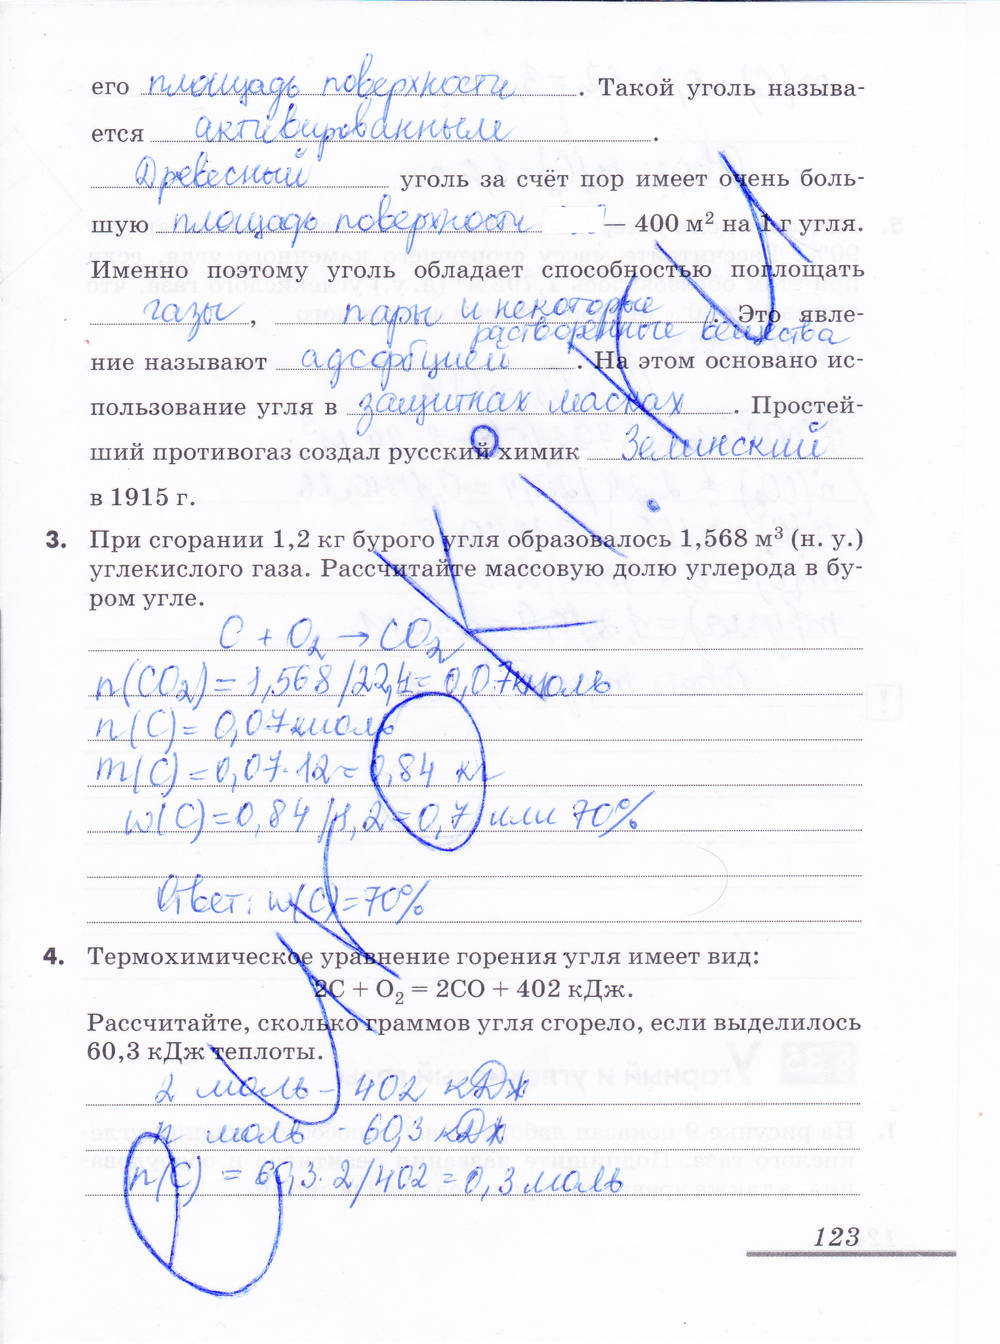 его площадь поверхности. Такой уголь называ-
ется активированным.
Древесный уголь за счёт пор имеет очень боль-
шую площадь поверхности — 400 м² на 1 г угля.
Именно поэтому уголь обладает способностью поглощать
газы, пары и некоторые растворённые вещества. Это явле-
ние называют адсорбцией. На этом основано ис-
пользование угля в защитных масках. Простей-
ший противогаз создал русский химик Зелинский
в 1915 г.
3. При сгорании 1,2 кг бурого угля образовалось 1,568 м³ (н. у.)
углекислого газа. Рассчитайте массовую долю углерода в бу-
ром угле.
C + O₂ → CO₂
n(CO₂) = 1,568/22,4 = 0,07 кмоль
n(C) = 0,07 кмоль
m(C) = 0,07·12 = 0,84 кг
w(C) = 0,84/1,2 = 0,7 или 70%
Ответ: w(C) = 70%
4. Термохимическое уравнение горения угля имеет вид:
2C + O₂ = 2CO + 402 кДж.
Рассчитайте, сколько граммов угля сгорело, если выделилось
60,3 кДж теплоты.
2 моль – 402 кДж
n моль – 60,3 кДж
n(C) = 60,3·2/402 = 0,3 моль
123